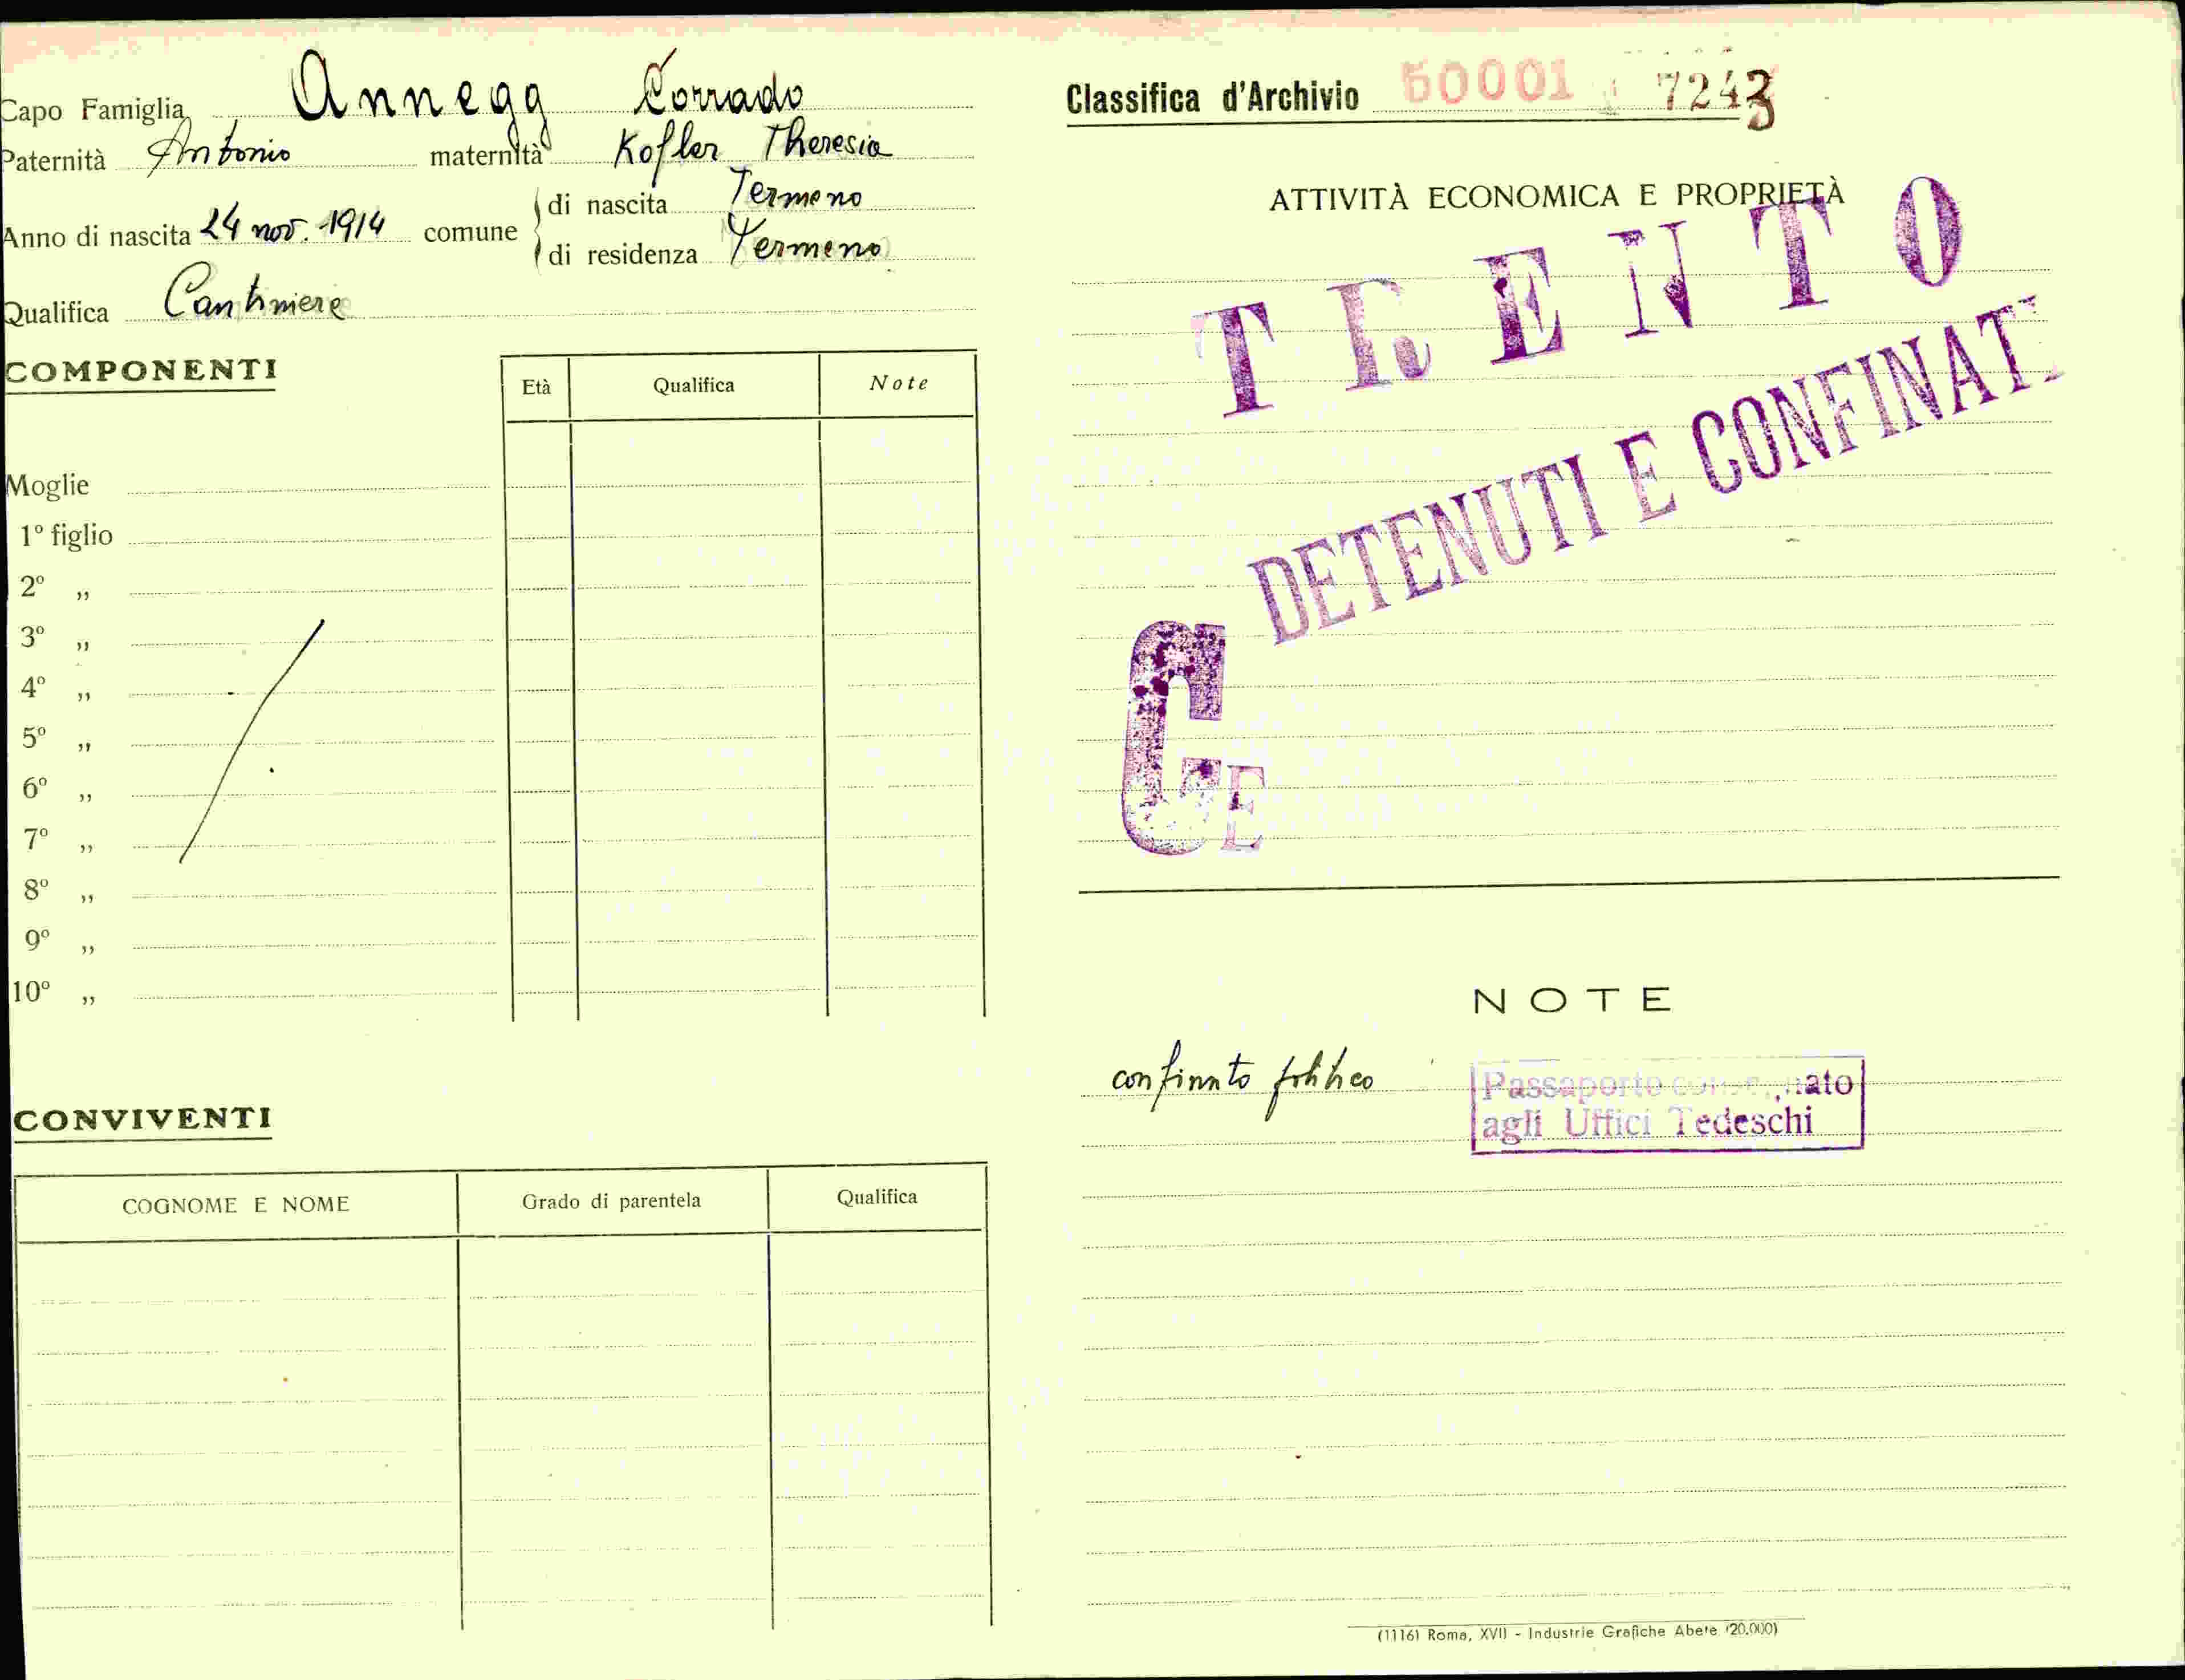 Capo Famiglia Annegg Corrado
Paternità Antonio maternità Kofler Theresia
Anno di nascita 24 nov. 1914 comune
di nascita Termeno
di residenza Termeno
Qualifica Cantiniere
COMPONENTI
Età Qualifica Note
Moglie
1º figlio
2º „
3º „
4º „
5º „
6º „
7º „
8º „
9º „
10º „
CONVIVENTI
COGNOME E NOME Grado di parentela Qualifica
Classifica d'Archivio 50001 7243
ATTIVITÀ ECONOMICA E PROPRIETÀ
TRENTO
DETENUTI E CONFINATI
CE
NOTE
confinato politico
Passaporto consegnato
agli Uffici Tedeschi
(1116) Roma, XVII - Industrie Grafiche Abete (20.000)